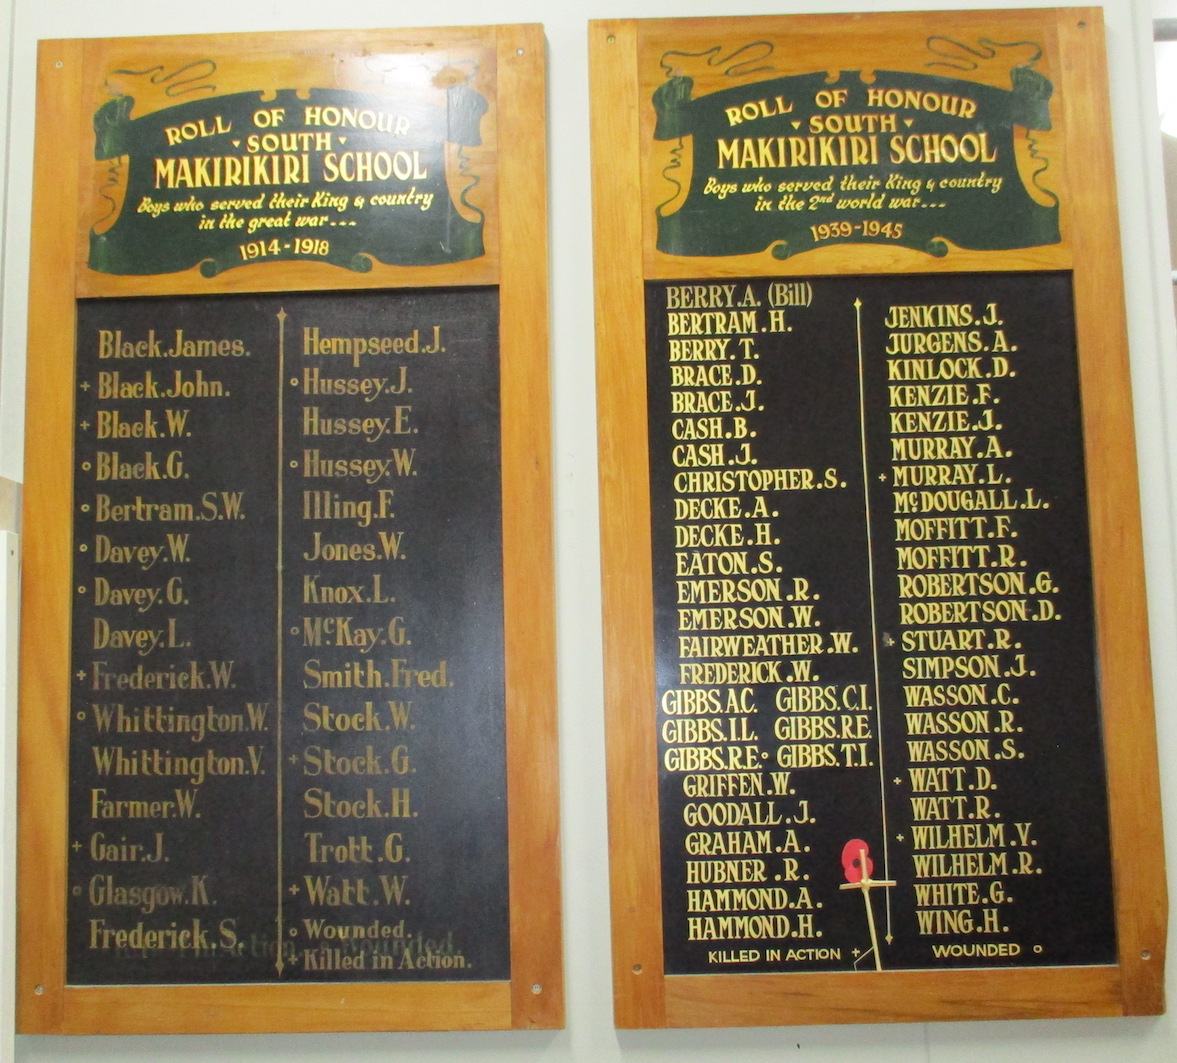 ROLL OF HONOUR
SOUTH
MAKIRIKIRI SCHOOL
Boys who served their King & country
in the great war---
1914-1918
Black.James.
+ Black.John.
+ Black.W.
o Black.G.
o Bertram.S.W.
o Davey.W.
o Davey.G.
Davey.L.
+ Frederick.W.
o Whittington.W.
Whittington.V.
Farmer.W.
+ Gair.J.
o Glasgow.K.
Frederick.S.
Hempseed.J.
o Hussey.J.
Hussey.E.
o Hussey.W.
Illing.F.
Jones.W.
Knox.L.
o McKay.G.
Smith.Fred.
Stock.W.
+ Stock.G.
Stock.H.
Trott.G.
+ Watt.W.
o Wounded.
+ Killed in Action.
ROLL OF HONOUR
SOUTH
MAKIRIKIRI SCHOOL
Boys who served their King & country
in the 2nd world war---
1939-1945
BERRY.A. (Bill)
BERTRAM.H.
BERRY.T.
BRACE.D.
BRACE.J.
CASH.B.
CASH.J.
CHRISTOPHER.S.
DECKE.A.
DECKE.H.
EATON.S.
EMERSON.R.
EMERSON.W.
FAIRWEATHER.W.
FREDERICK.W.
GIBBS.A.C. GIBBS.C.I.
GIBBS.I.L. GIBBS.R.E.
GIBBS.R.E.o GIBBS.T.I.
GRIFFEN.W.
GOODALL.J.
GRAHAM.A.
HUBNER.R.
HAMMOND.A.
HAMMOND.H.
KILLED IN ACTION +
JENKINS.J.
JURGENS.A.
KINLOCK.D.
KENZIE.F.
KENZIE.J.
MURRAY.A.
+ MURRAY.L.
McDOUGALL.L.
MOFFITT.F.
MOFFITT.R.
ROBERTSON.G.
ROBERTSON.D.
+ STUART.R.
SIMPSON.J.
WASSON.C.
WASSON.R.
WASSON.S.
+ WATT.D.
WATT.R.
+ WILHELM.V.
WILHELM.R.
WHITE.G.
WING.H.
WOUNDED o